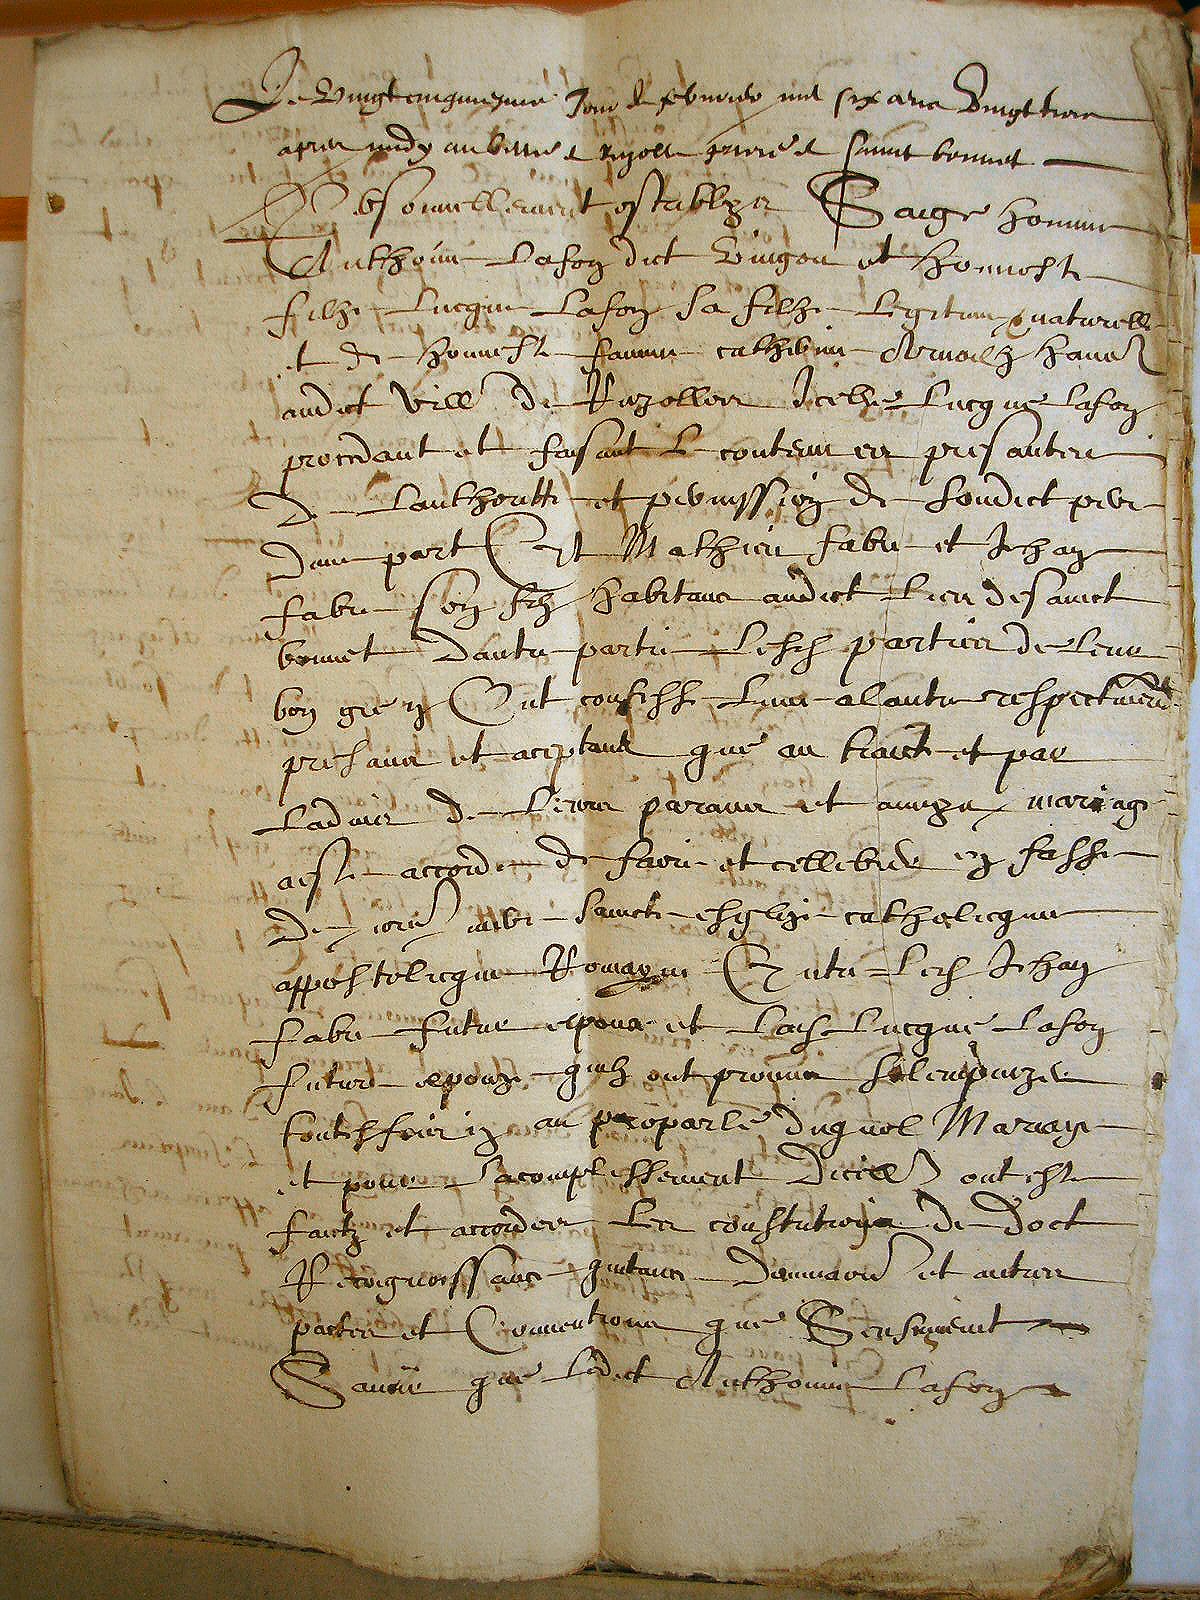 Le vingt cinquiesme Jour de febvrier mil six cens vingt trois
apres midy au de
Personnellement establys Saige homme
Anthoine Lafon dict Vingou et honneste
filhe Lucque Lafon sa filhe legitime & naturelle
et de honneste famme catherine
audict ville de Icelle Lucque Lafon
procedant et faisant le contenu en presantes
de lauthoritte et permission de sondict pere
dune part Et Mathieu fabre et Jehan
fabre son filz habitans audict lieu de sainct
bonnet dautre partie Lesd parties de leur
bon gre Ont confesse lune a lautre respectivement
presans et aceptans que au traicte et par
ladvis de leurs parans et amys mariage
a este accorde de faire et cellebrer en fasse
de nre mere saincte esglize catholicque
appostolicque Romayne Entre led Jehan
fabre futur espoux et lad Lucque Lafon
future espouze quilz ont promis solempnizer
toutesfois au proparle duquel Mariage
et pour lacomplissement dicelluy ont este
faictz et accordes les constitutions de doct
Recognoissance quitance et autres
pactes et Conventions que Sensuivent
Savoir que ledict Anthoine Lafon